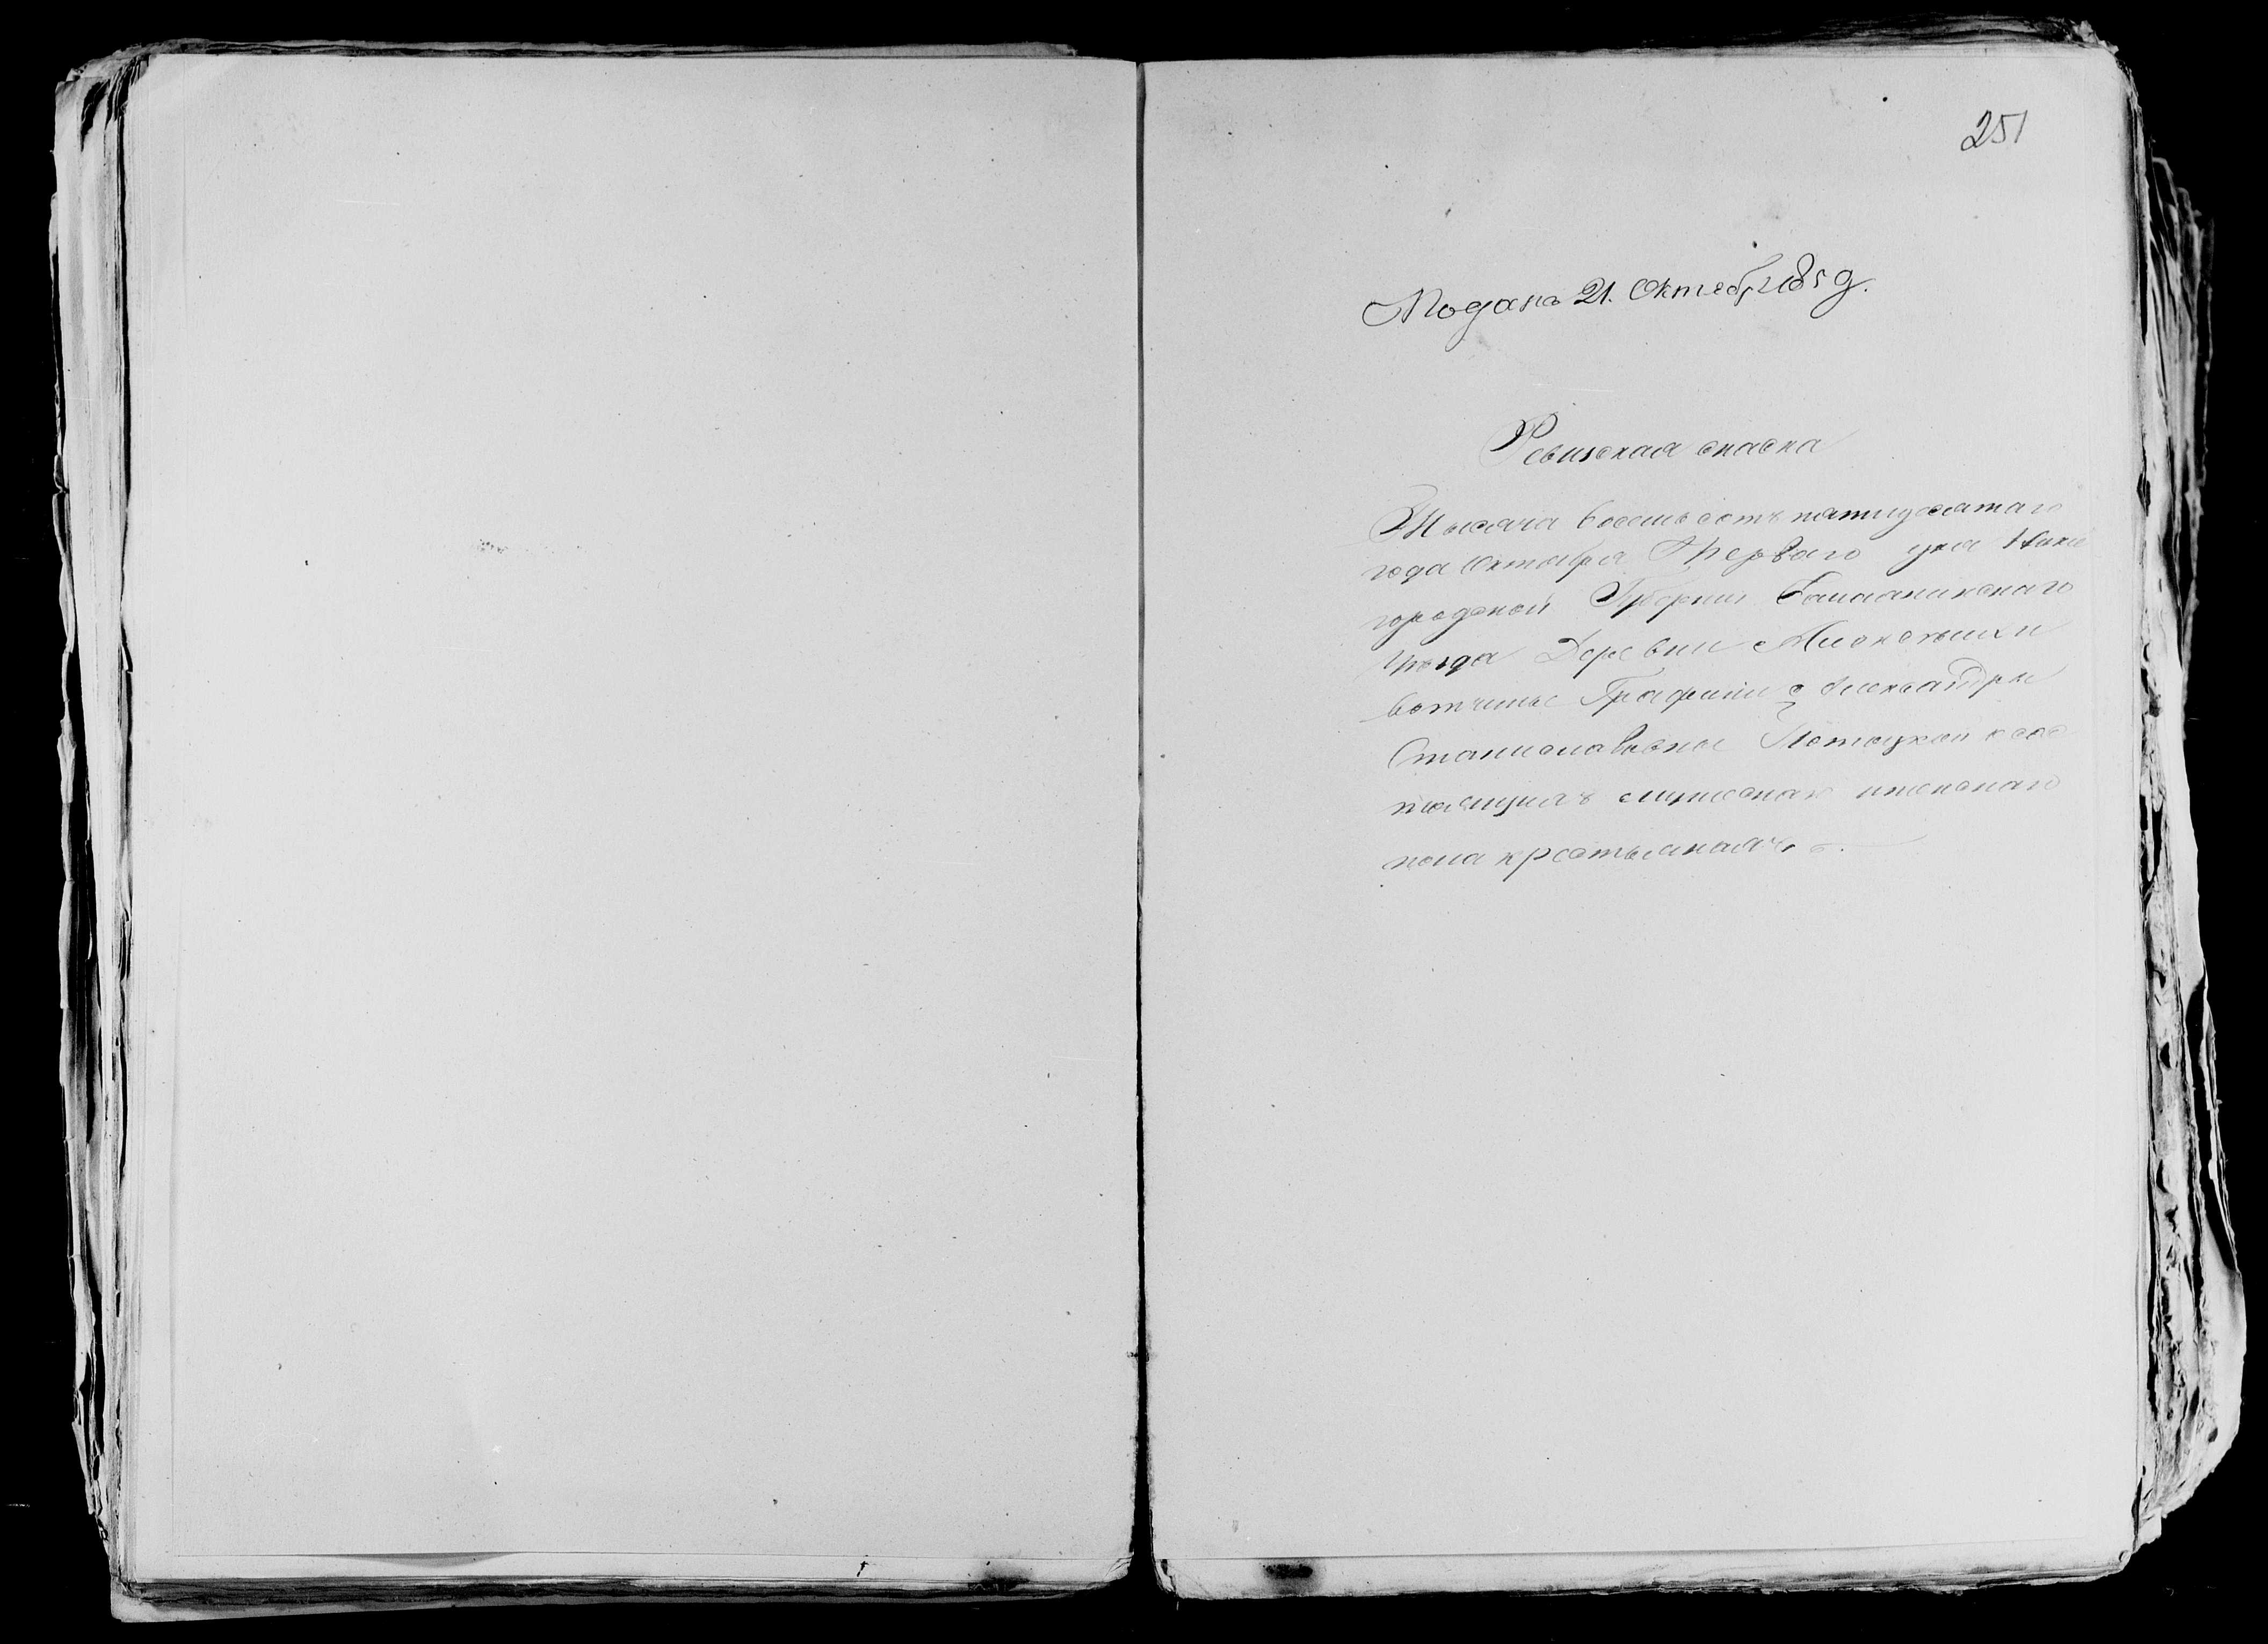 251
Подана 21. Октебр 185 g.
Ревизская скаска
Тысяча восемь сотъ пятидесятаго
года Октября Перваго дня Ниже
городской Губернии Балахнинскаго
уезда Деревни
вотчины Графини Александры
Станиславовны Потоцкой о сос
тоящихъ мужескаго и женскаго
пола крестьянахъ.